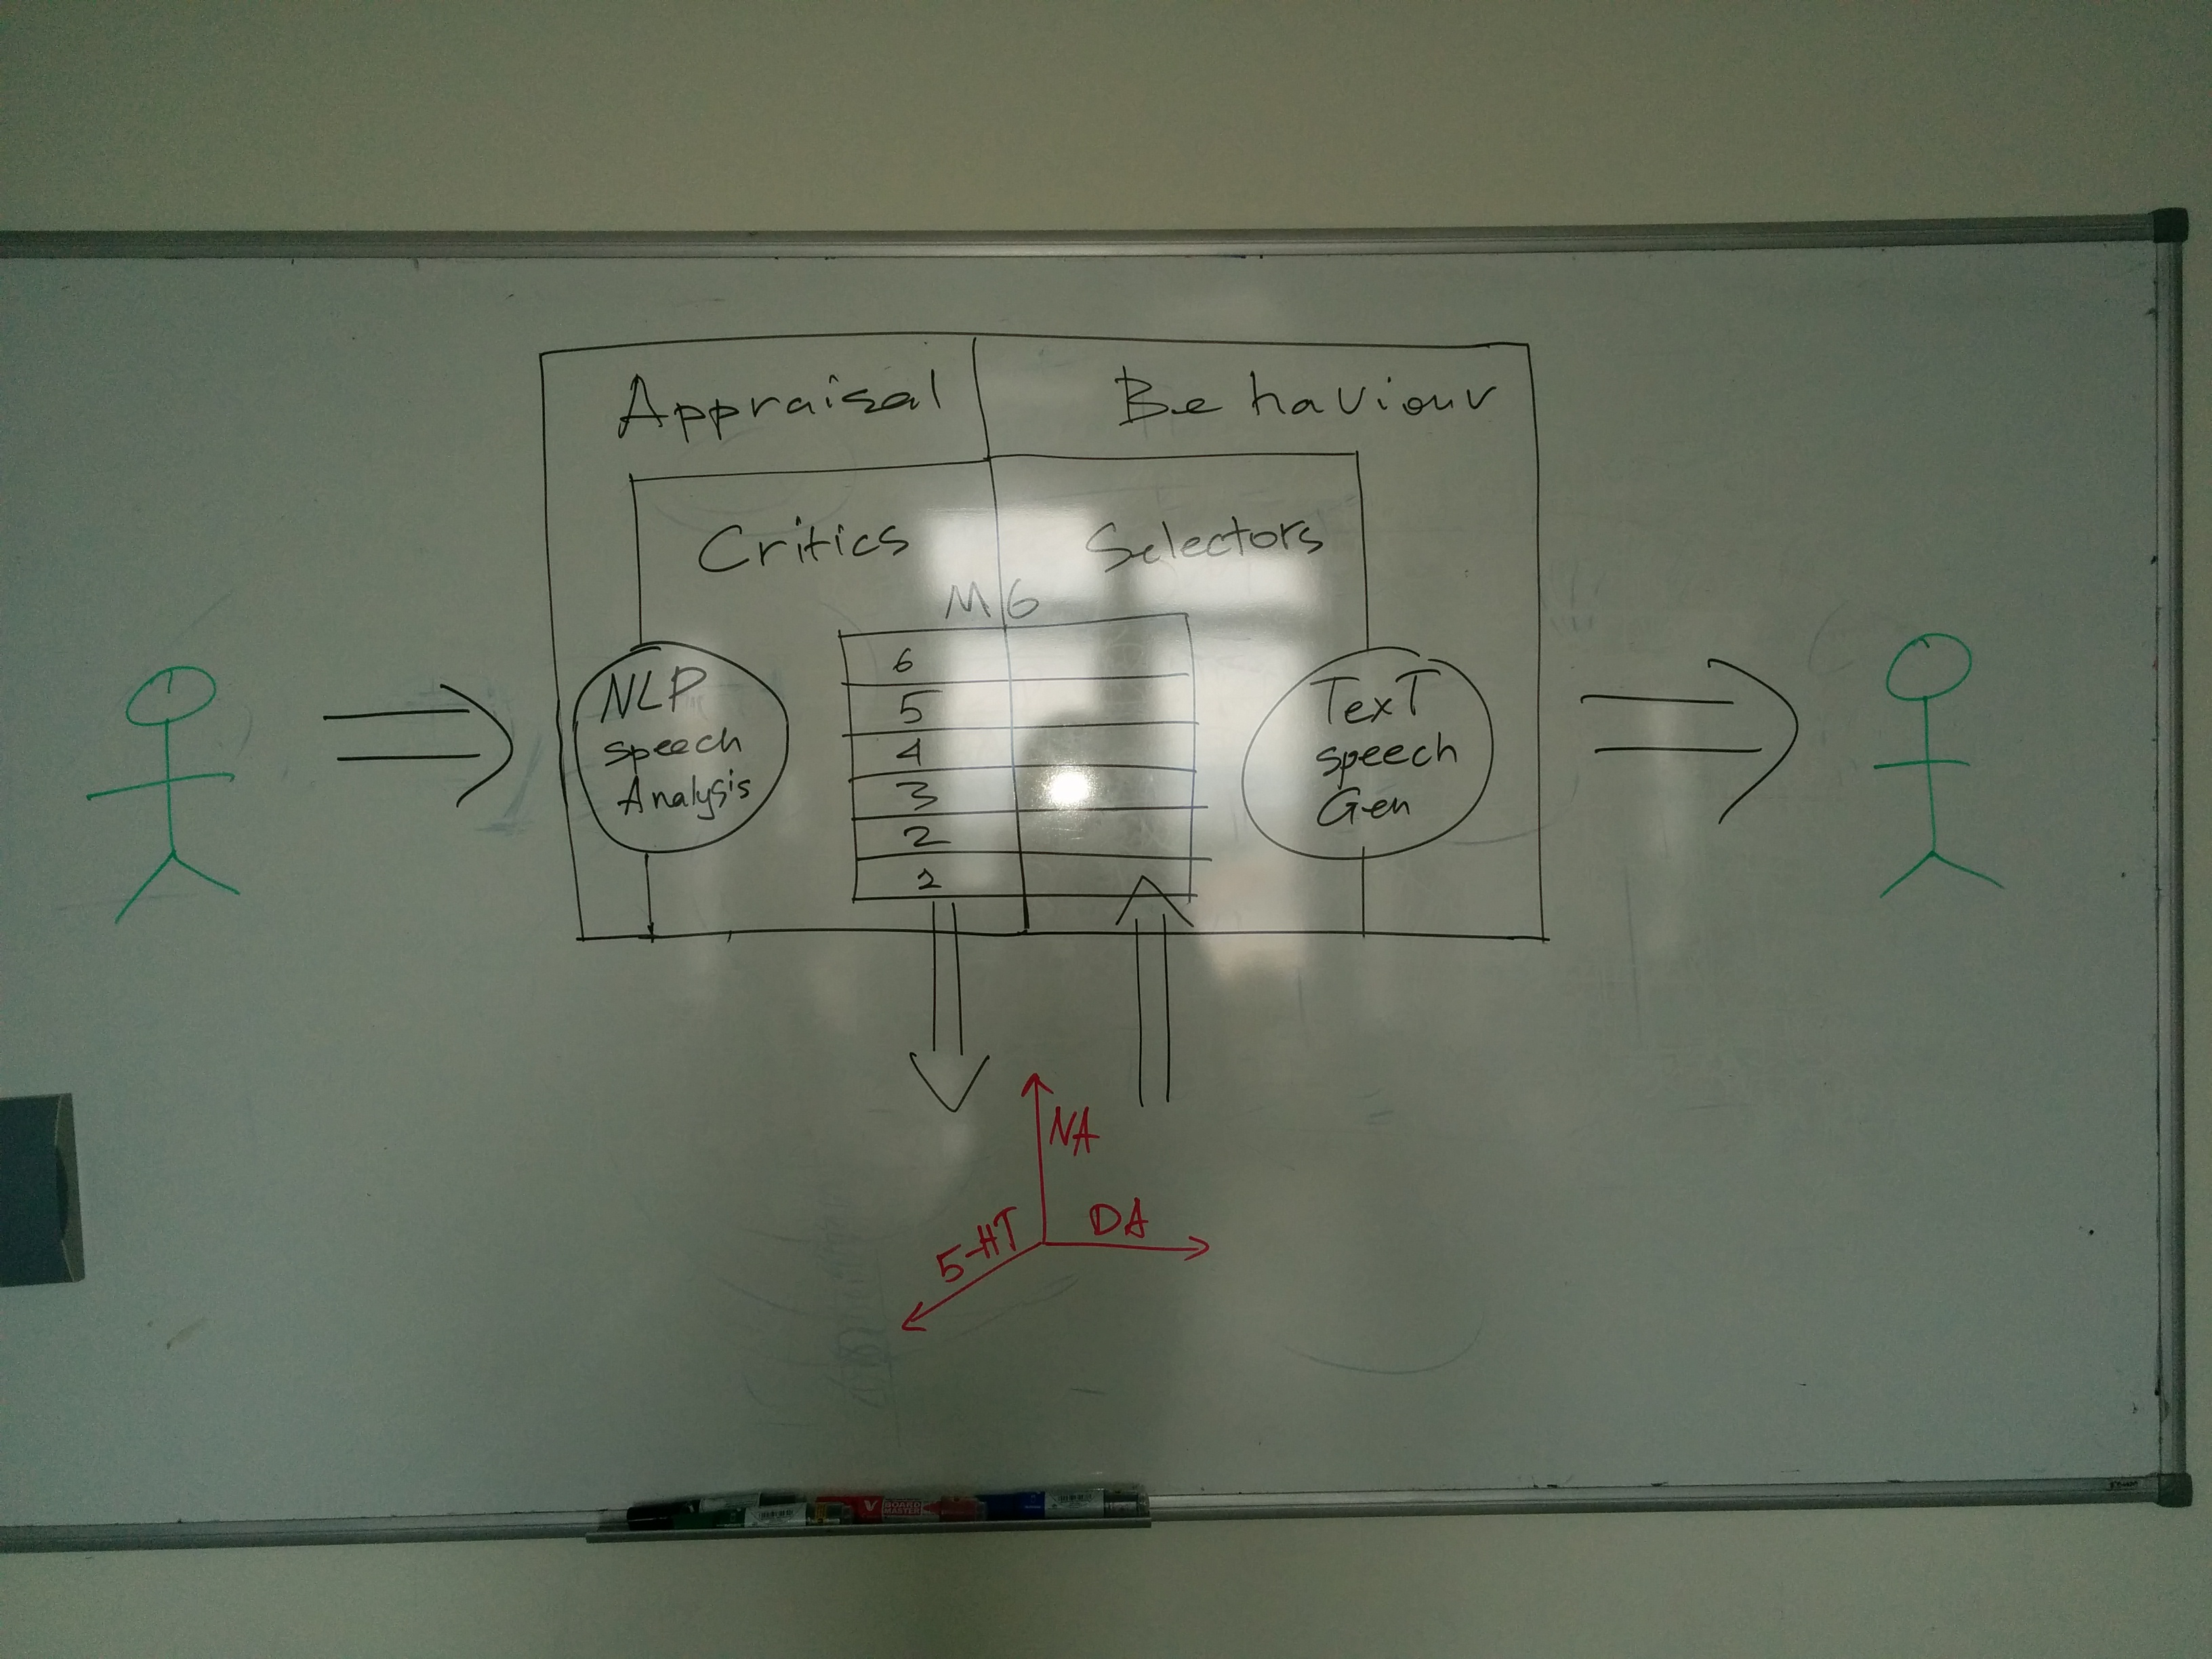 Appraisal
Behaviour
Critics
Selectors
M6
6
5
4
3
2
2
NLP
speech
Analysis
TexT
speech
Gen
NA
DA
5-HT
V BOARD
MASTER